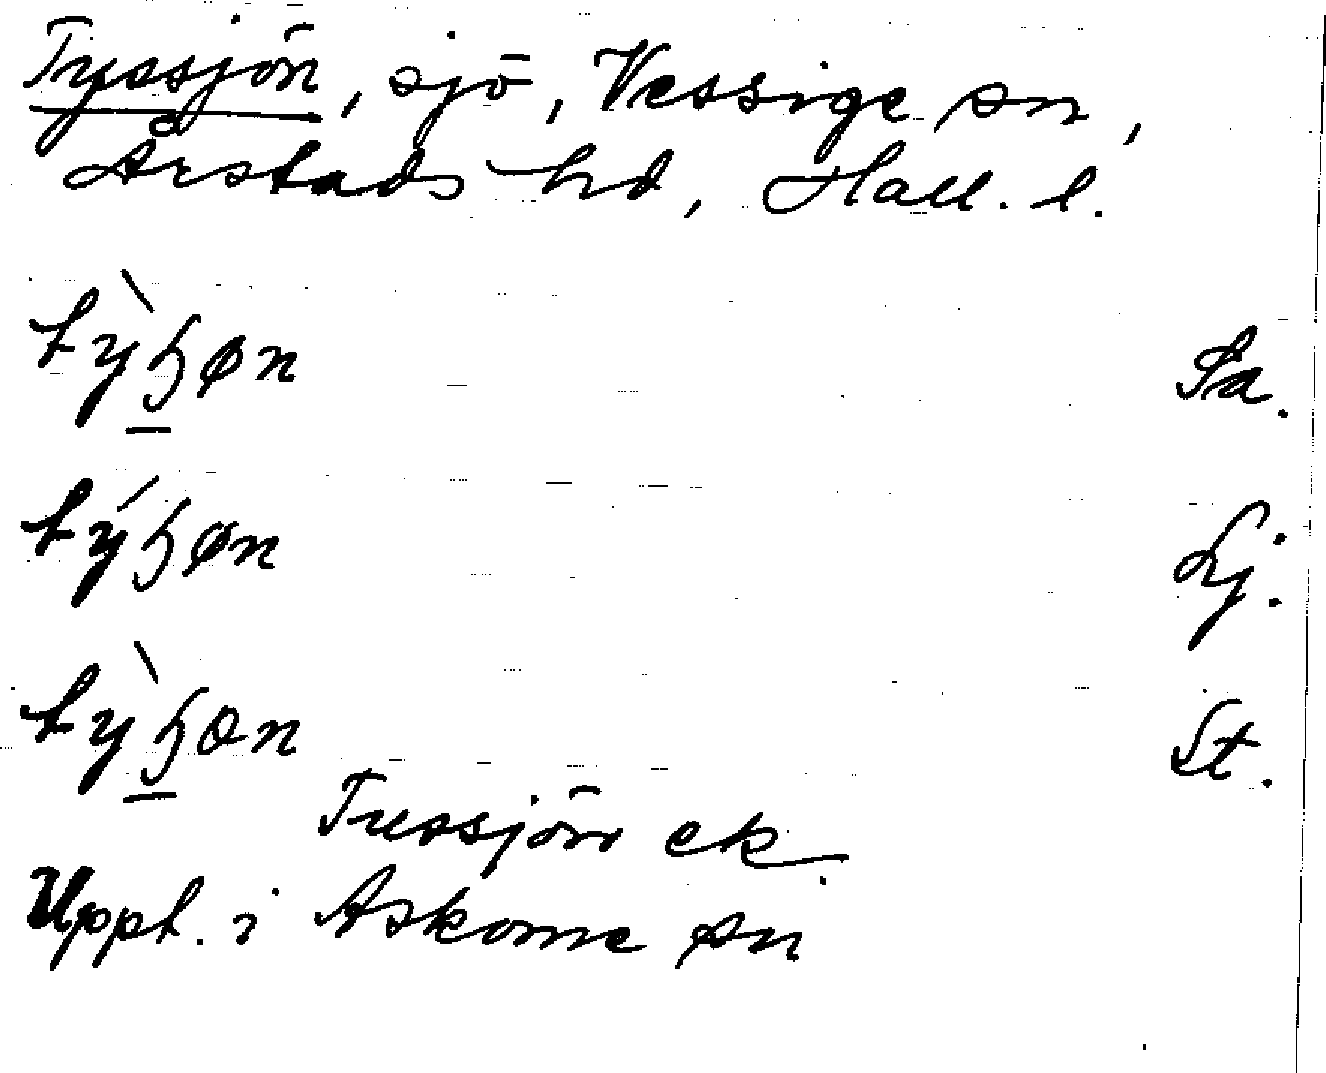 Tyssjön, sjö, Vessige sn,
Årstads hd, Hall. l.
tỳɧøn Sa.
týɧøn Lj.
tỳɧon St.
Tussjön ek.
Uppt. i Askome sn